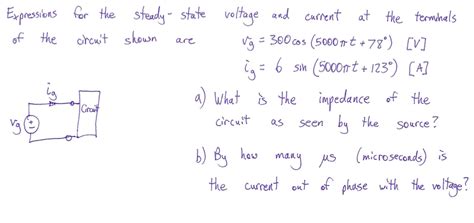 Expressions for the steady-state voltage and current at the terminals
of the circuit shown are vg = 300 cos (5000πt + 78°) [V]
ig = 6 sin (5000πt + 123°) [A]
ig
Circuit
vg
+
-
a) What is the impedance of the
circuit as seen by the source?
b) By how many μs (microseconds) is
the current out of phase with the voltage?